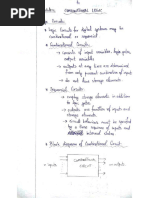 COMBINATIONAL LOGIC
Logic Circuits for digital systems may be
combinational or sequential
Combinational Circuits:
→ consists of input variables, logic gates,
output variables
→ outputs at any time are determined
from only present combination of
inputs
→ do not have storage elements
Sequential Circuits:
→ employ storage elements in addition
to logic gates
→ outputs are function of inputs and
storage elements
→ circuit behaviour must be specified
by a time sequence of inputs and
internal states
Block diagram of Combinational Circuit:
COMBINATIONAL
CIRCUIT
inputs
outputs